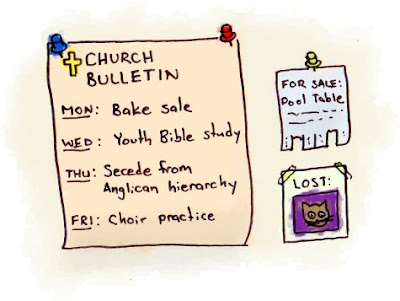 CHURCH
BULLETIN
MON: Bake sale
WED: Youth Bible study
THU: Secede from
Anglican hierarchy
FRI: Choir practice
FOR SALE:
Pool Table
LOST: